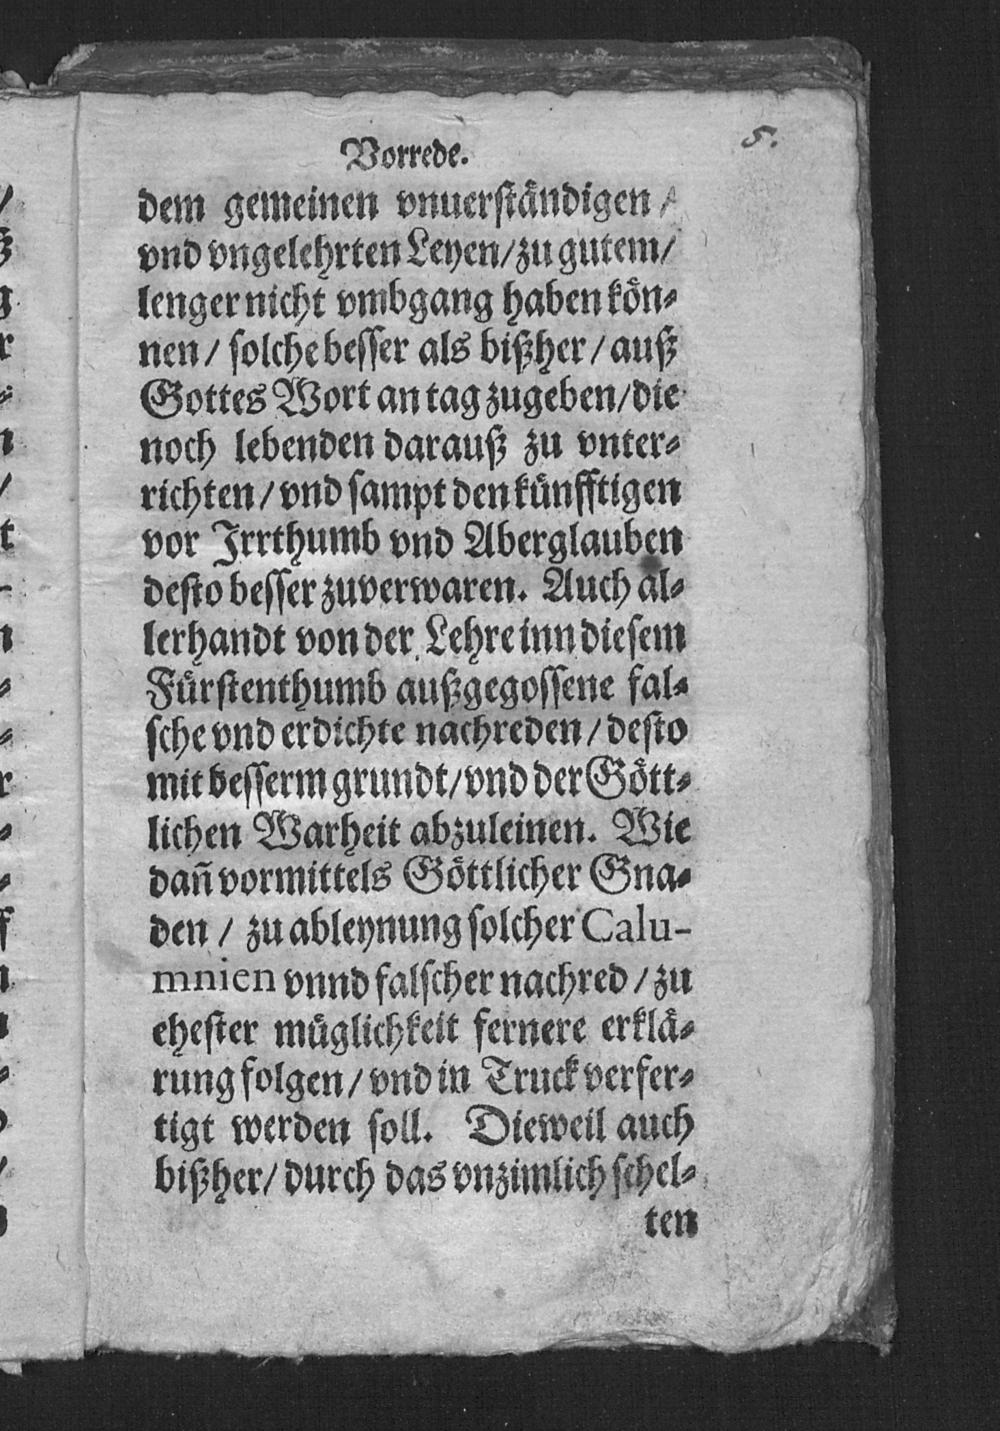 Vorrede.
5.
dem gemeinen vnuerständigen /
vnd vngelehrten Leyen/zu gutem/
lenger nicht vmbgang haben kön⸗
nen / solche besser als bißher / auß
Gottes Wort an tag zugeben/die
noch lebenden darauß zu vnter⸗
richten / vnd sampt den künfftigen
vor Jrrthumb vnd Aberglauben
desto besser zuverwaren. Auch al⸗
lerhandt von der Lehre inn diesem
Fürstenthumb außgegossene fal⸗
sche vnd erdichte nachreden / desto
mit besserm grundt/vnd der Gött⸗
lichen Warheit abzuleinen. Wie
dañ vormittels Göttlicher Gna⸗
den / zu ableynung solcher Calu-
mnien vnnd falscher nachred / zu
ehester müglichkeit fernere erklä⸗
rung folgen / vnd in Truck verfer⸗
tigt werden soll. Dieweil auch
bißher/ durch das vnzimlich schel⸗
ten